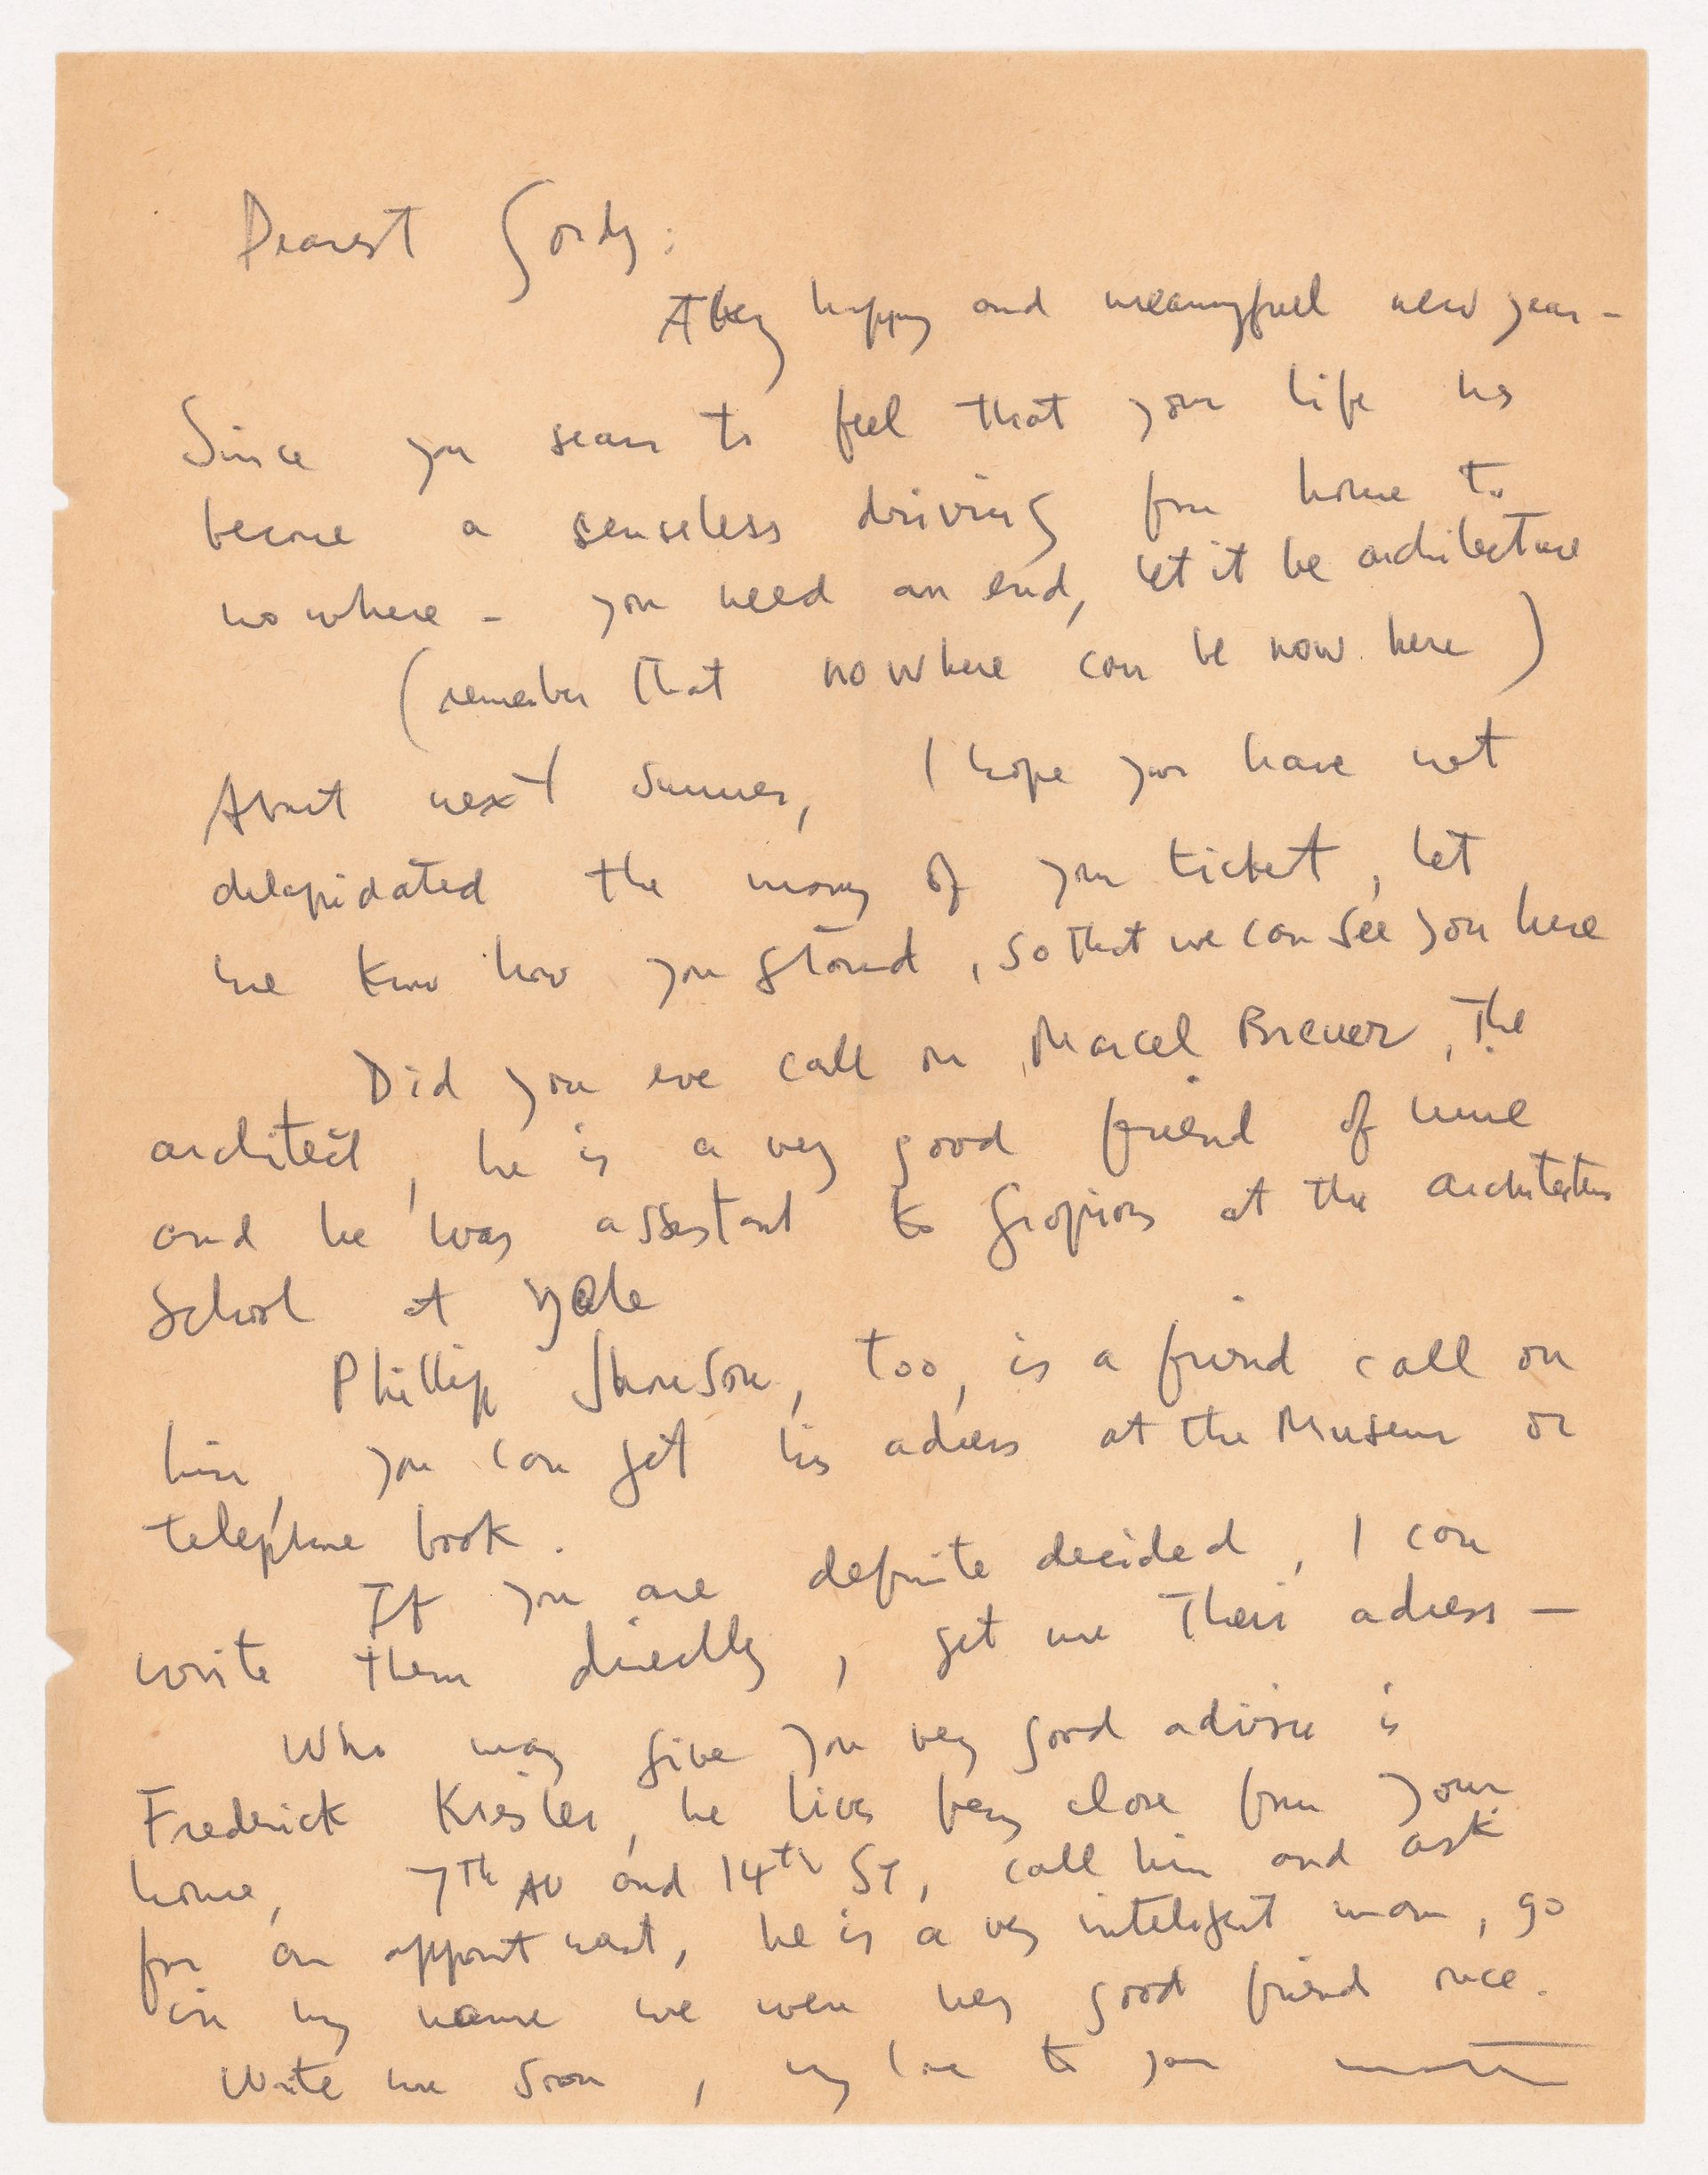 Dearest Gordy:
A very happy and meaningfull new year -
Since you seam to feel that your life has
become a senseless driving from home to
no where - you need an end, let it be architecture
(remember that nowhere can be now here)
About next summer, I hope you have not
delapidated the money of your ticket, let
me know how you stand, so that we can see you here
Did you eve call on Marcel Breuer, the
architect, he is a very good friend of mine
and he was assestant to Gropius at the architecture
School at Yale
Phillip Jhonson, too, is a friend call on
him, you can get his adress at the Museum or
telephone book.
If you are definite decided, I can
write them directly, get me their adress -
Who may give you very good advise is
Frederick Kiesler, he lives very close from your
home, 7th AV and 14th St, call him and ask
for an appointment, he is a very inteligent man, go
in my name we were very good friend once.
Write me soon, my love to you